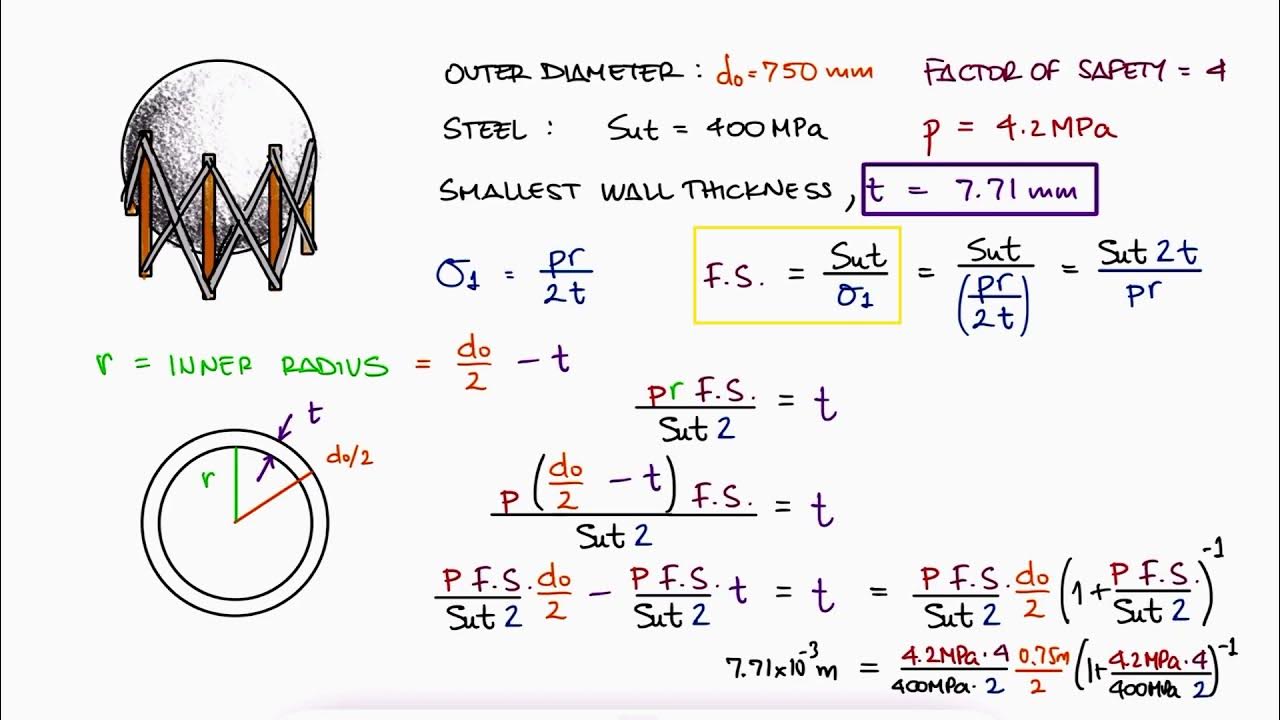 OUTER DIAMETER : do = 750 mm FACTOR OF SAFETY = 4
STEEL : Sut = 400 MPa p = 4.2 MPa
SMALLEST WALL THICKNESS , t = 7.71 mm
σ1 = pr/2t F.S. = Sut/σ1 = Sut/(pr/2t) = Sut 2t/pr
r = INNER RADIUS = do/2 - t
pr F.S./Sut 2 = t
t
do/2
r
p (do/2 - t) F.S./Sut 2 = t
p F.S./Sut 2 · do/2 - p F.S./Sut 2 · t = t = p F.S./Sut 2 · do/2 (1 + p F.S./Sut 2)^-1
7.71 x 10^-3 m = 4.2 MPa · 4/400 MPa · 2 0.75m/2 (1 + 4.2 MPa · 4/400 MPa 2)^-1